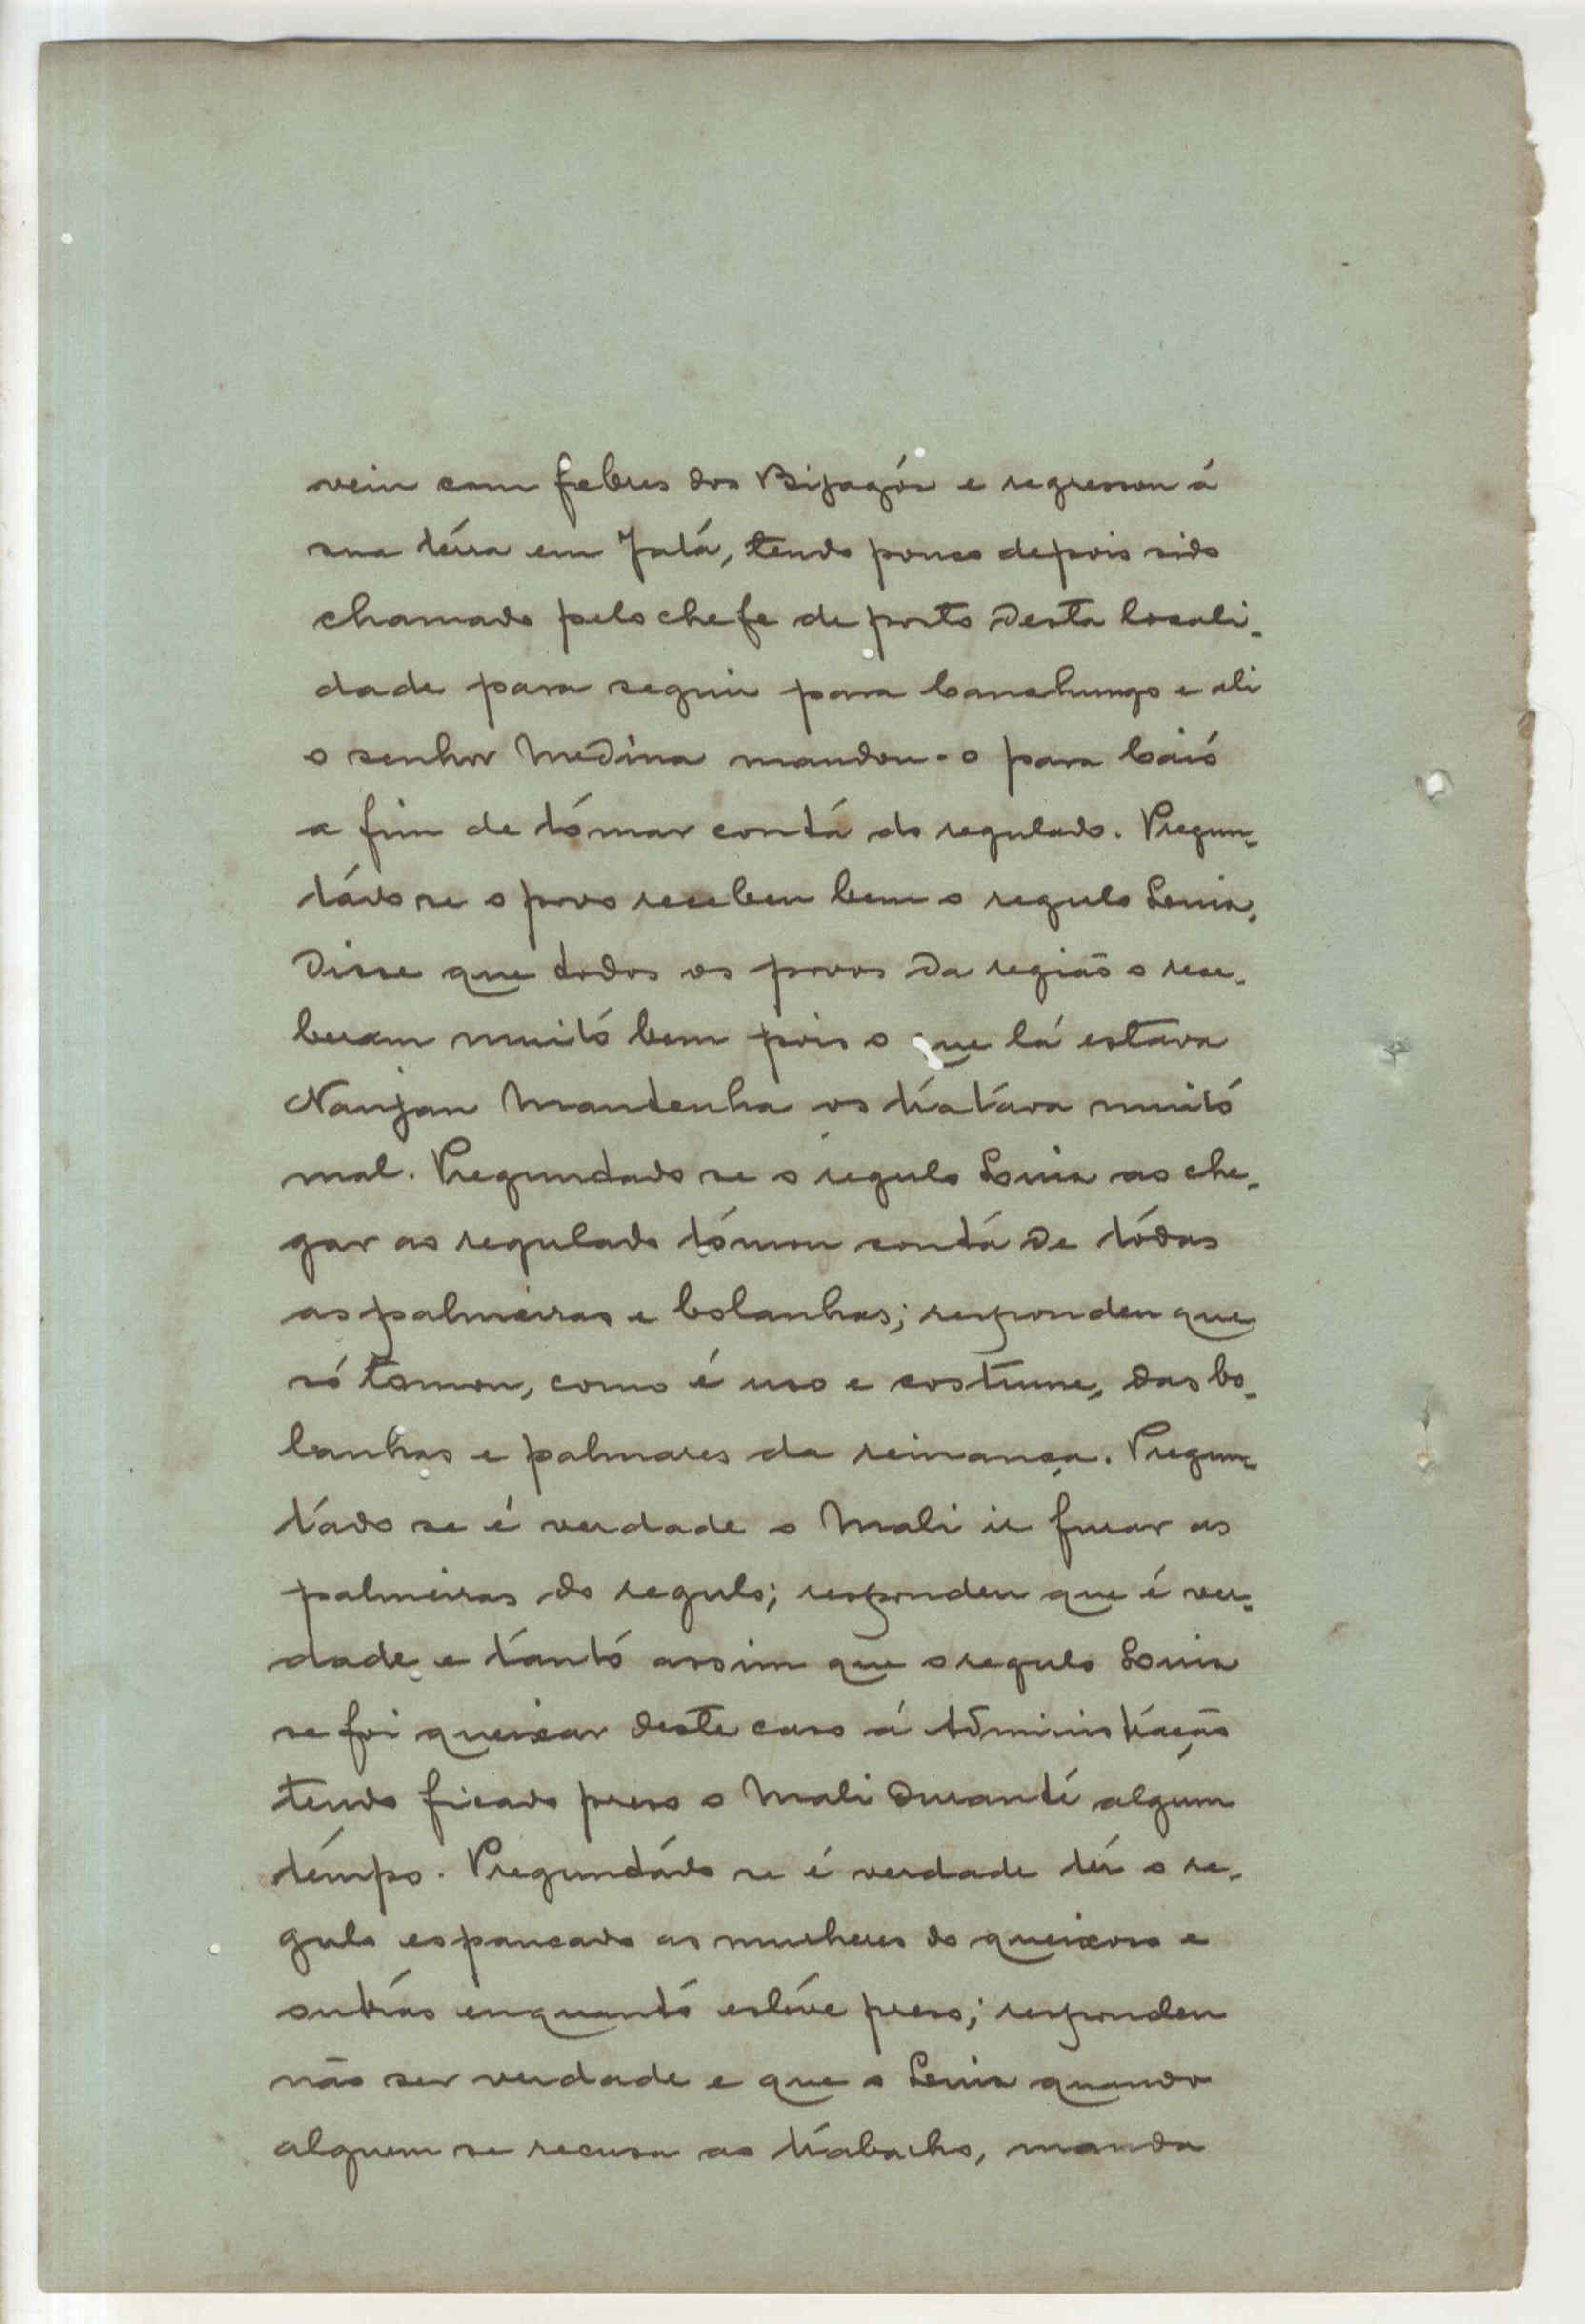 veiu com febres dos Bijagós e regressou á
sua terra em Jatá, tendo pouco depois sido
chamado pelo chefe de posto desta locali-
dade para seguir para Canchungo e ali
o senhor Medina mandou-o para Caió
a fim de tomar conta do regulado. Pregun-
tado se o povo recebeu bem o regulo Luis,
disse que todos os povos da região o rece-
beram muito bem pois o que lá estava
Nanjan Mantenha os tratava muito
mal. Preguntado se o regulo Luis ao che-
gar ao regulado tomou conta de todas
as palmeiras e bolanhas; respondeu que
só tomou, como é uso e costume, das bo-
lanhas e palmares da reinança. Pregun-
tado se é verdade o Mali ir furar as
palmeiras do regulo; respondeu que é ver-
dade e tanto assim que o regulo Luis
se foi queixar deste caso á Administração
tendo ficado preso o Mali durante algum
tempo. Preguntado se é verdade ter o re-
gulo espancado as mulheres do queixoso e
outras enquanto esteve preso; respondeu
não ser verdade e que o Luis quando
alguem se recusa ao trabalho, manda